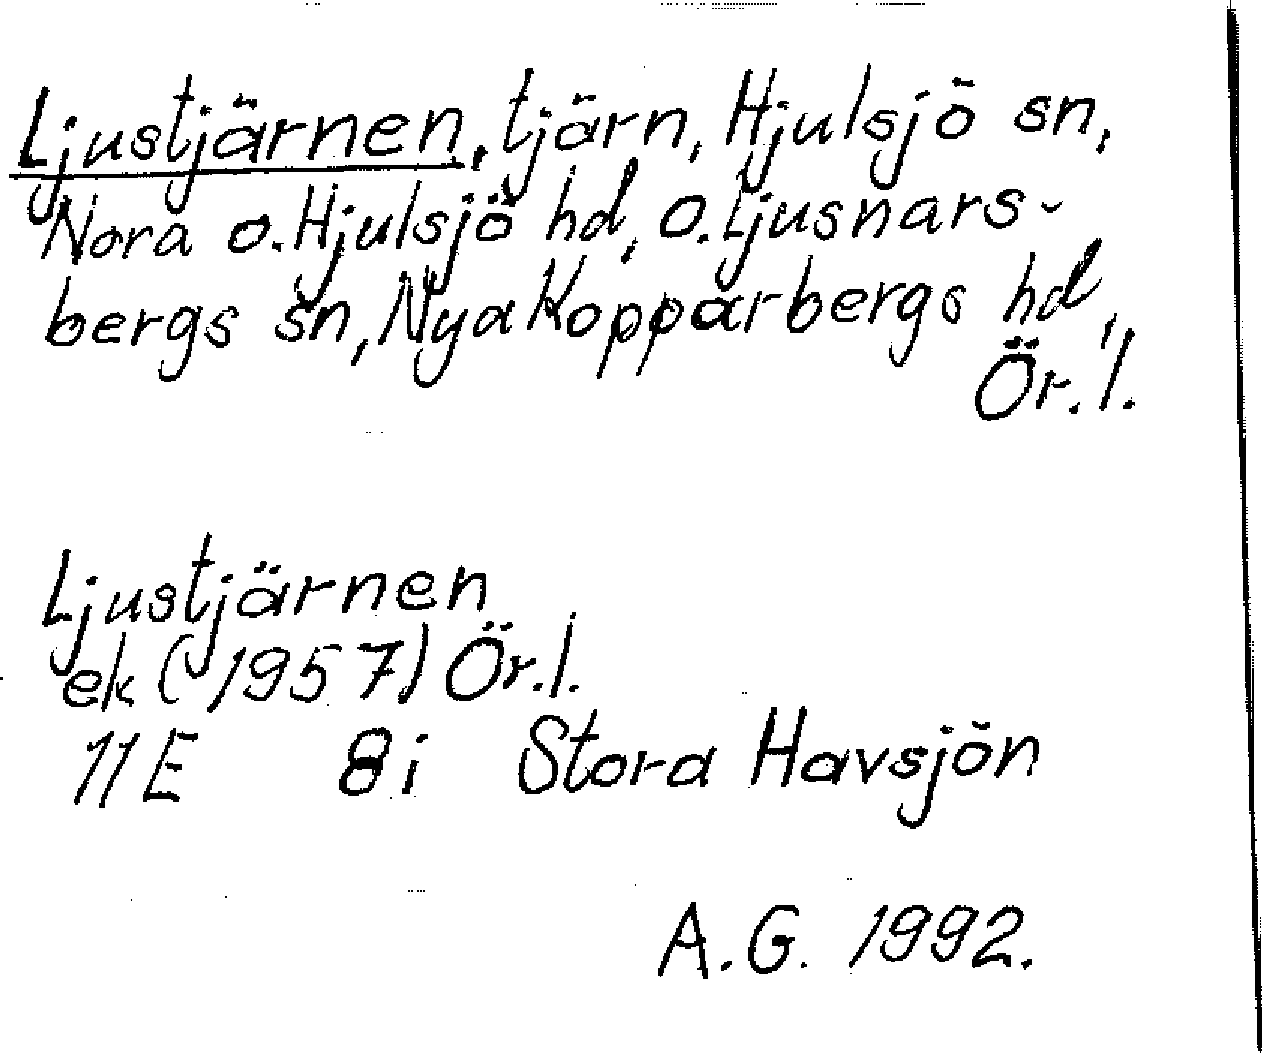 Ljustjärnen, tjärn, Hjulsjö sn,
Nora o. Hjulsjö hd, o. Ljusnars-
bergs sn, Nya Kopparbergs hd,
Ör. l.
Ljustjärnen
ek (1957) Ör. l.
11E 8i Stora Havsjön
A.G. 1992.